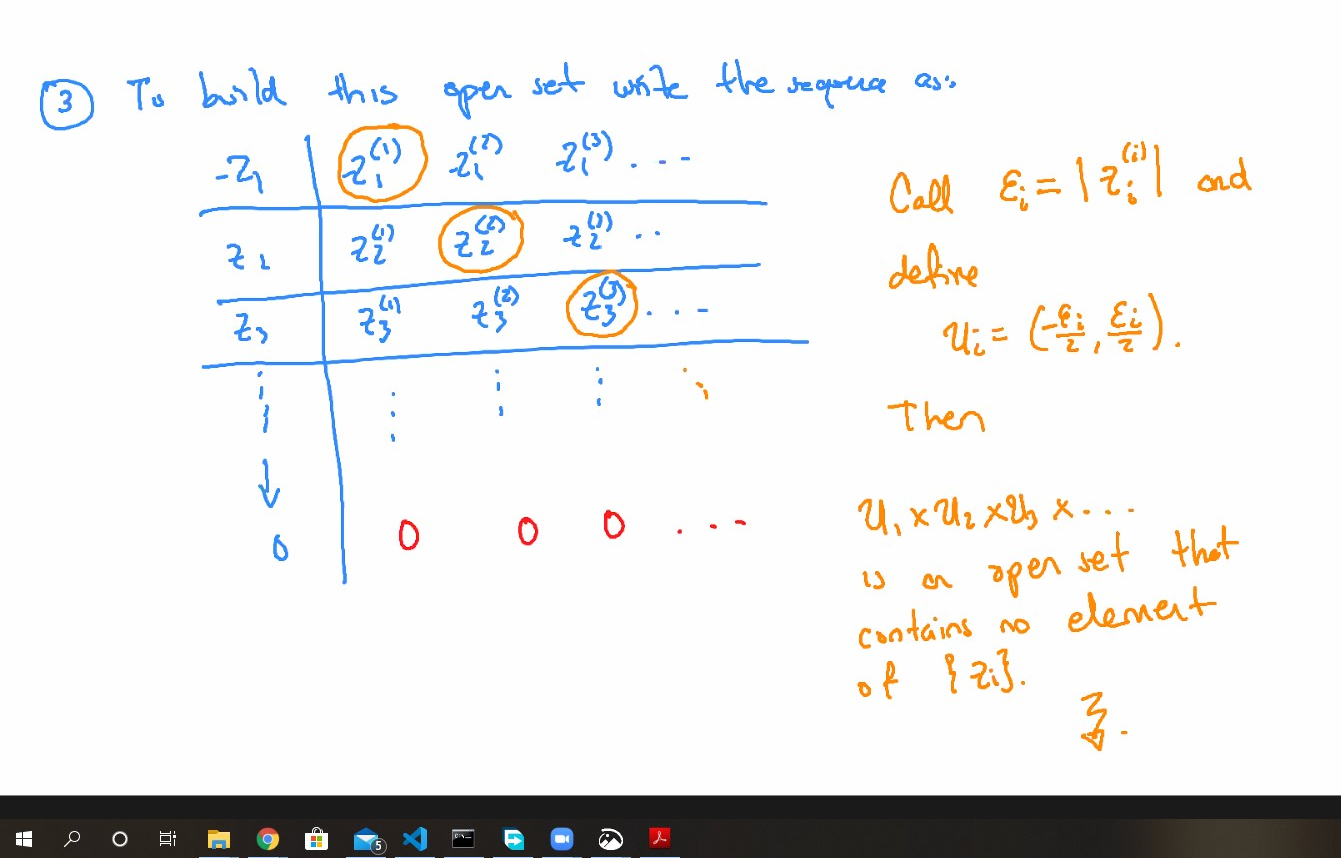 ③ To build this open set write the sequence as:
-Z₁ | z₁⁽¹⁾ z₁⁽²⁾ z₁⁽³⁾ ...
z₂ | z₂⁽¹⁾ z₂⁽²⁾ z₂⁽³⁾ ..
z₃ | z₃⁽¹⁾ z₃⁽²⁾ z₃⁽³⁾ ...
0 | 0 0 0 ...
Call εᵢ = |zᵢ⁽ⁱ⁾| and
define
Uᵢ = (-εᵢ/2, εᵢ/2).
Then
U₁ × U₂ × U₃ × ...
is an open set that
contains no element
of {zᵢ}.
5